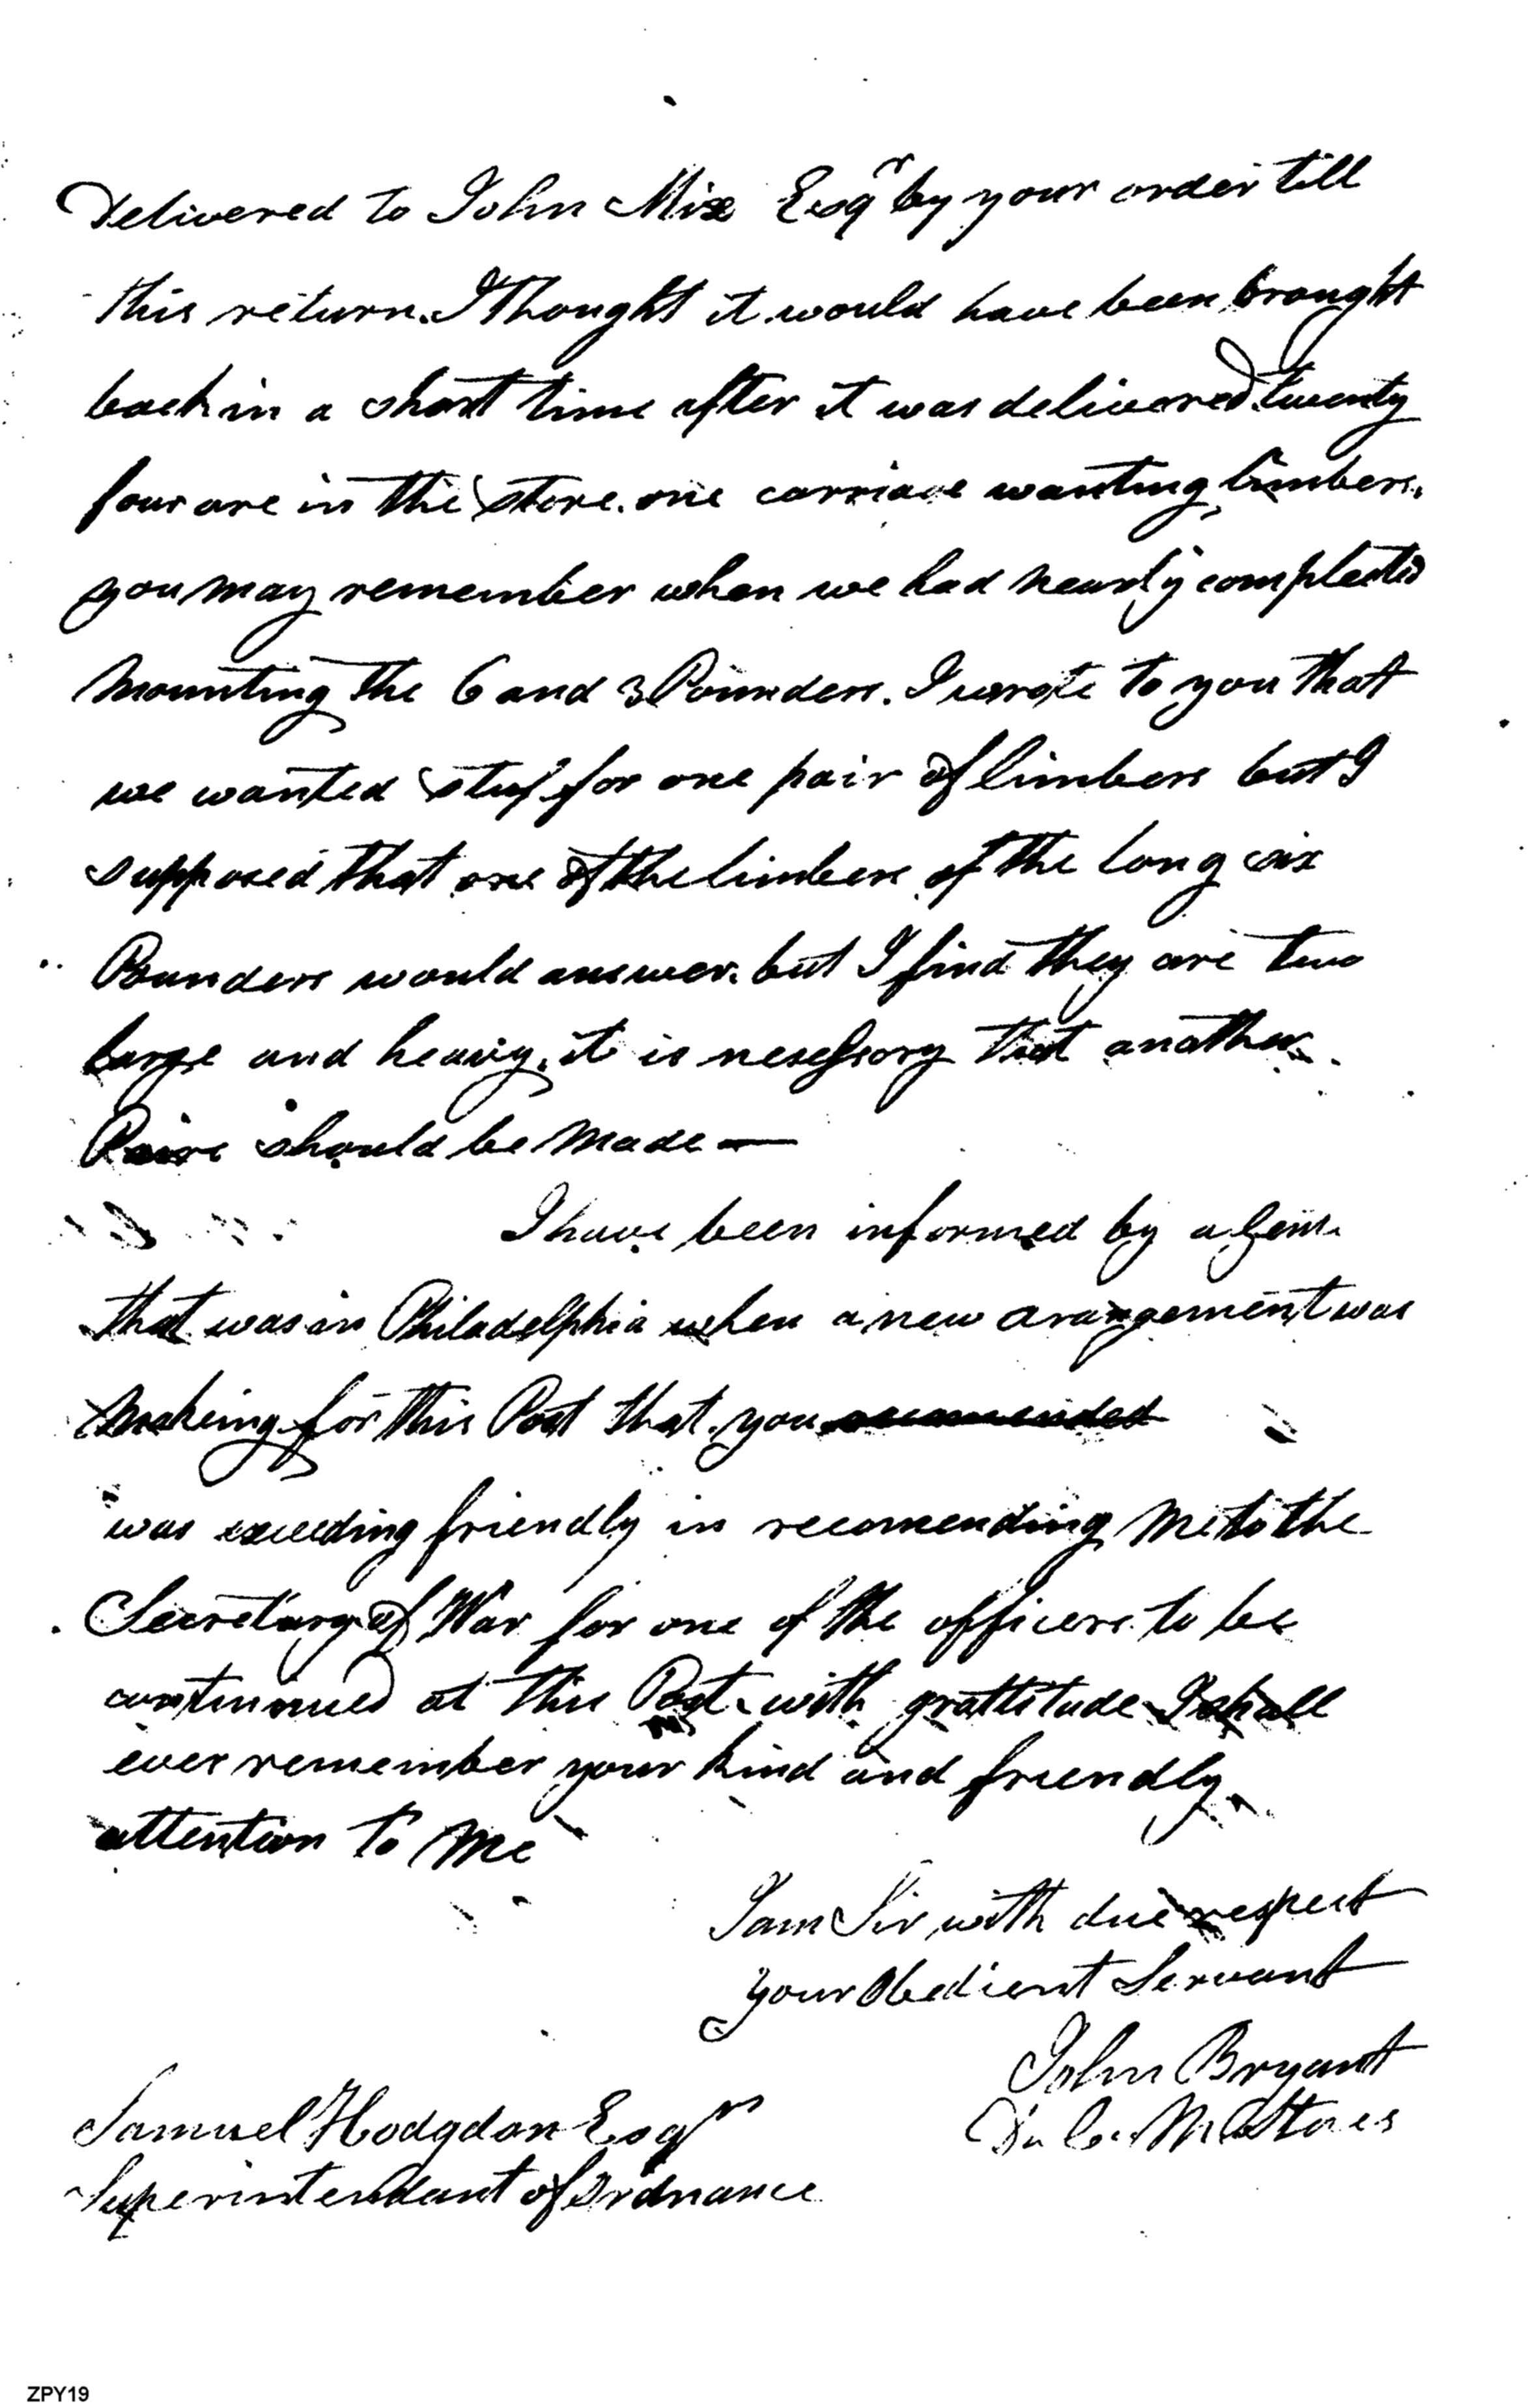 Delivered to John Mix Esqr by your order till
this return. I thought it would have been brought
back in a short time after it was delivered twenty
four are in the store. one carriage wanting limbers.
you may remember when we had nearly complected
mounting the 6 and 3 Pounders. I wrote to you that
we wanted stuf for one pair of limbers but I
supposed that one of the limbers of the long six
Pounders would answer. but I find they are two
large and heavy. it is nesessory that another
Paire should be made —
I have been informed by a Gent.
that was in Philadelphia when a new arangement was
making for this Post that you recommended
was exceeding friendly in recomending me to the
Secretary of War for one of the officers to be
continued at this Post. with grattitude I shall
ever remember your kind and friendly
attention to me
I am Sir with due respect
your Obedient Servant
John Bryant
M Stores
Samuel Hodgdon Esqr
Superintendant of Ordnance
ZPY19